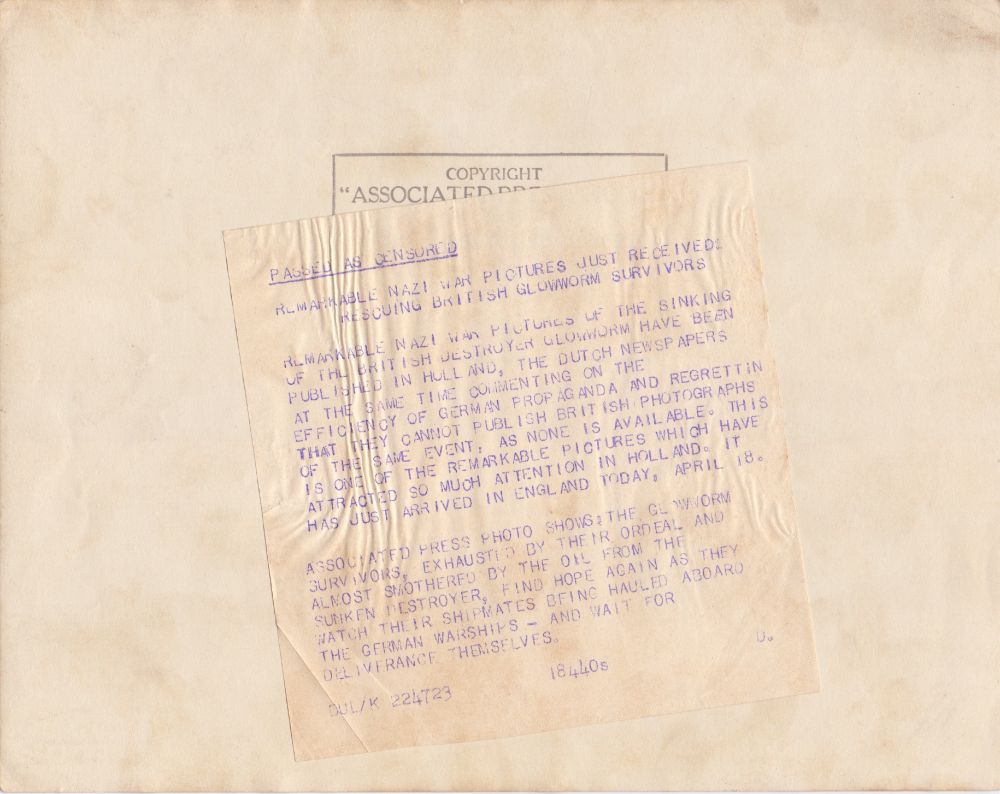 COPYRIGHT
"ASSOCIATED
PASSED AS CENSURED
REMARKABLE NAZI WAR PICTURES JUST RECEIVED:
RESCUING BRITISH GLOWWORM SURVIVORS
REMARKABLE NAZI WAR PICTURES OF THE SINKING
OF THE BRITISH DESTROYER GLOWWORM HAVE BEEN
PUBLISHED IN HOLLAND, THE DUTCH NEWSPAPERS
AT THE SAME TIME COMMENTING ON THE
EFFICIENCY OF GERMAN PROPAGANDA AND REGRETTIN
THAT THEY CANNOT PUBLISH BRITISH PHOTOGRAPHS
OF THE SAME EVENT, AS NONE IS AVAILABLE. THIS
IS ONE OF THE REMARKABLE PICTURES WHICH HAVE
ATTRACTED SO MUCH ATTENTION IN HOLLAND. IT
HAS JUST ARRIVED IN ENGLAND TODAY, APRIL 18.
ASSOCIATED PRESS PHOTO SHOWS: THE GLOWWORM
SURVIVORS, EXHAUSTED BY THEIR ORDEAL AND
ALMOST SMOTHERED BY THE OIL FROM THE
SUNKEN DESTROYER, FIND HOPE AGAIN AS THEY
WATCH THEIR SHIPMATES BEING HAULED ABOARD
THE GERMAN WARSHIPS - AND WAIT FOR
DELIVERANCE THEMSELVES. D.
DUL/K 224723 18440s